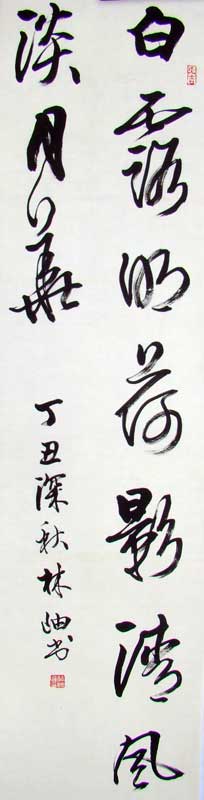 白露明荷影清风
淡月華
丁丑深秋林岫书